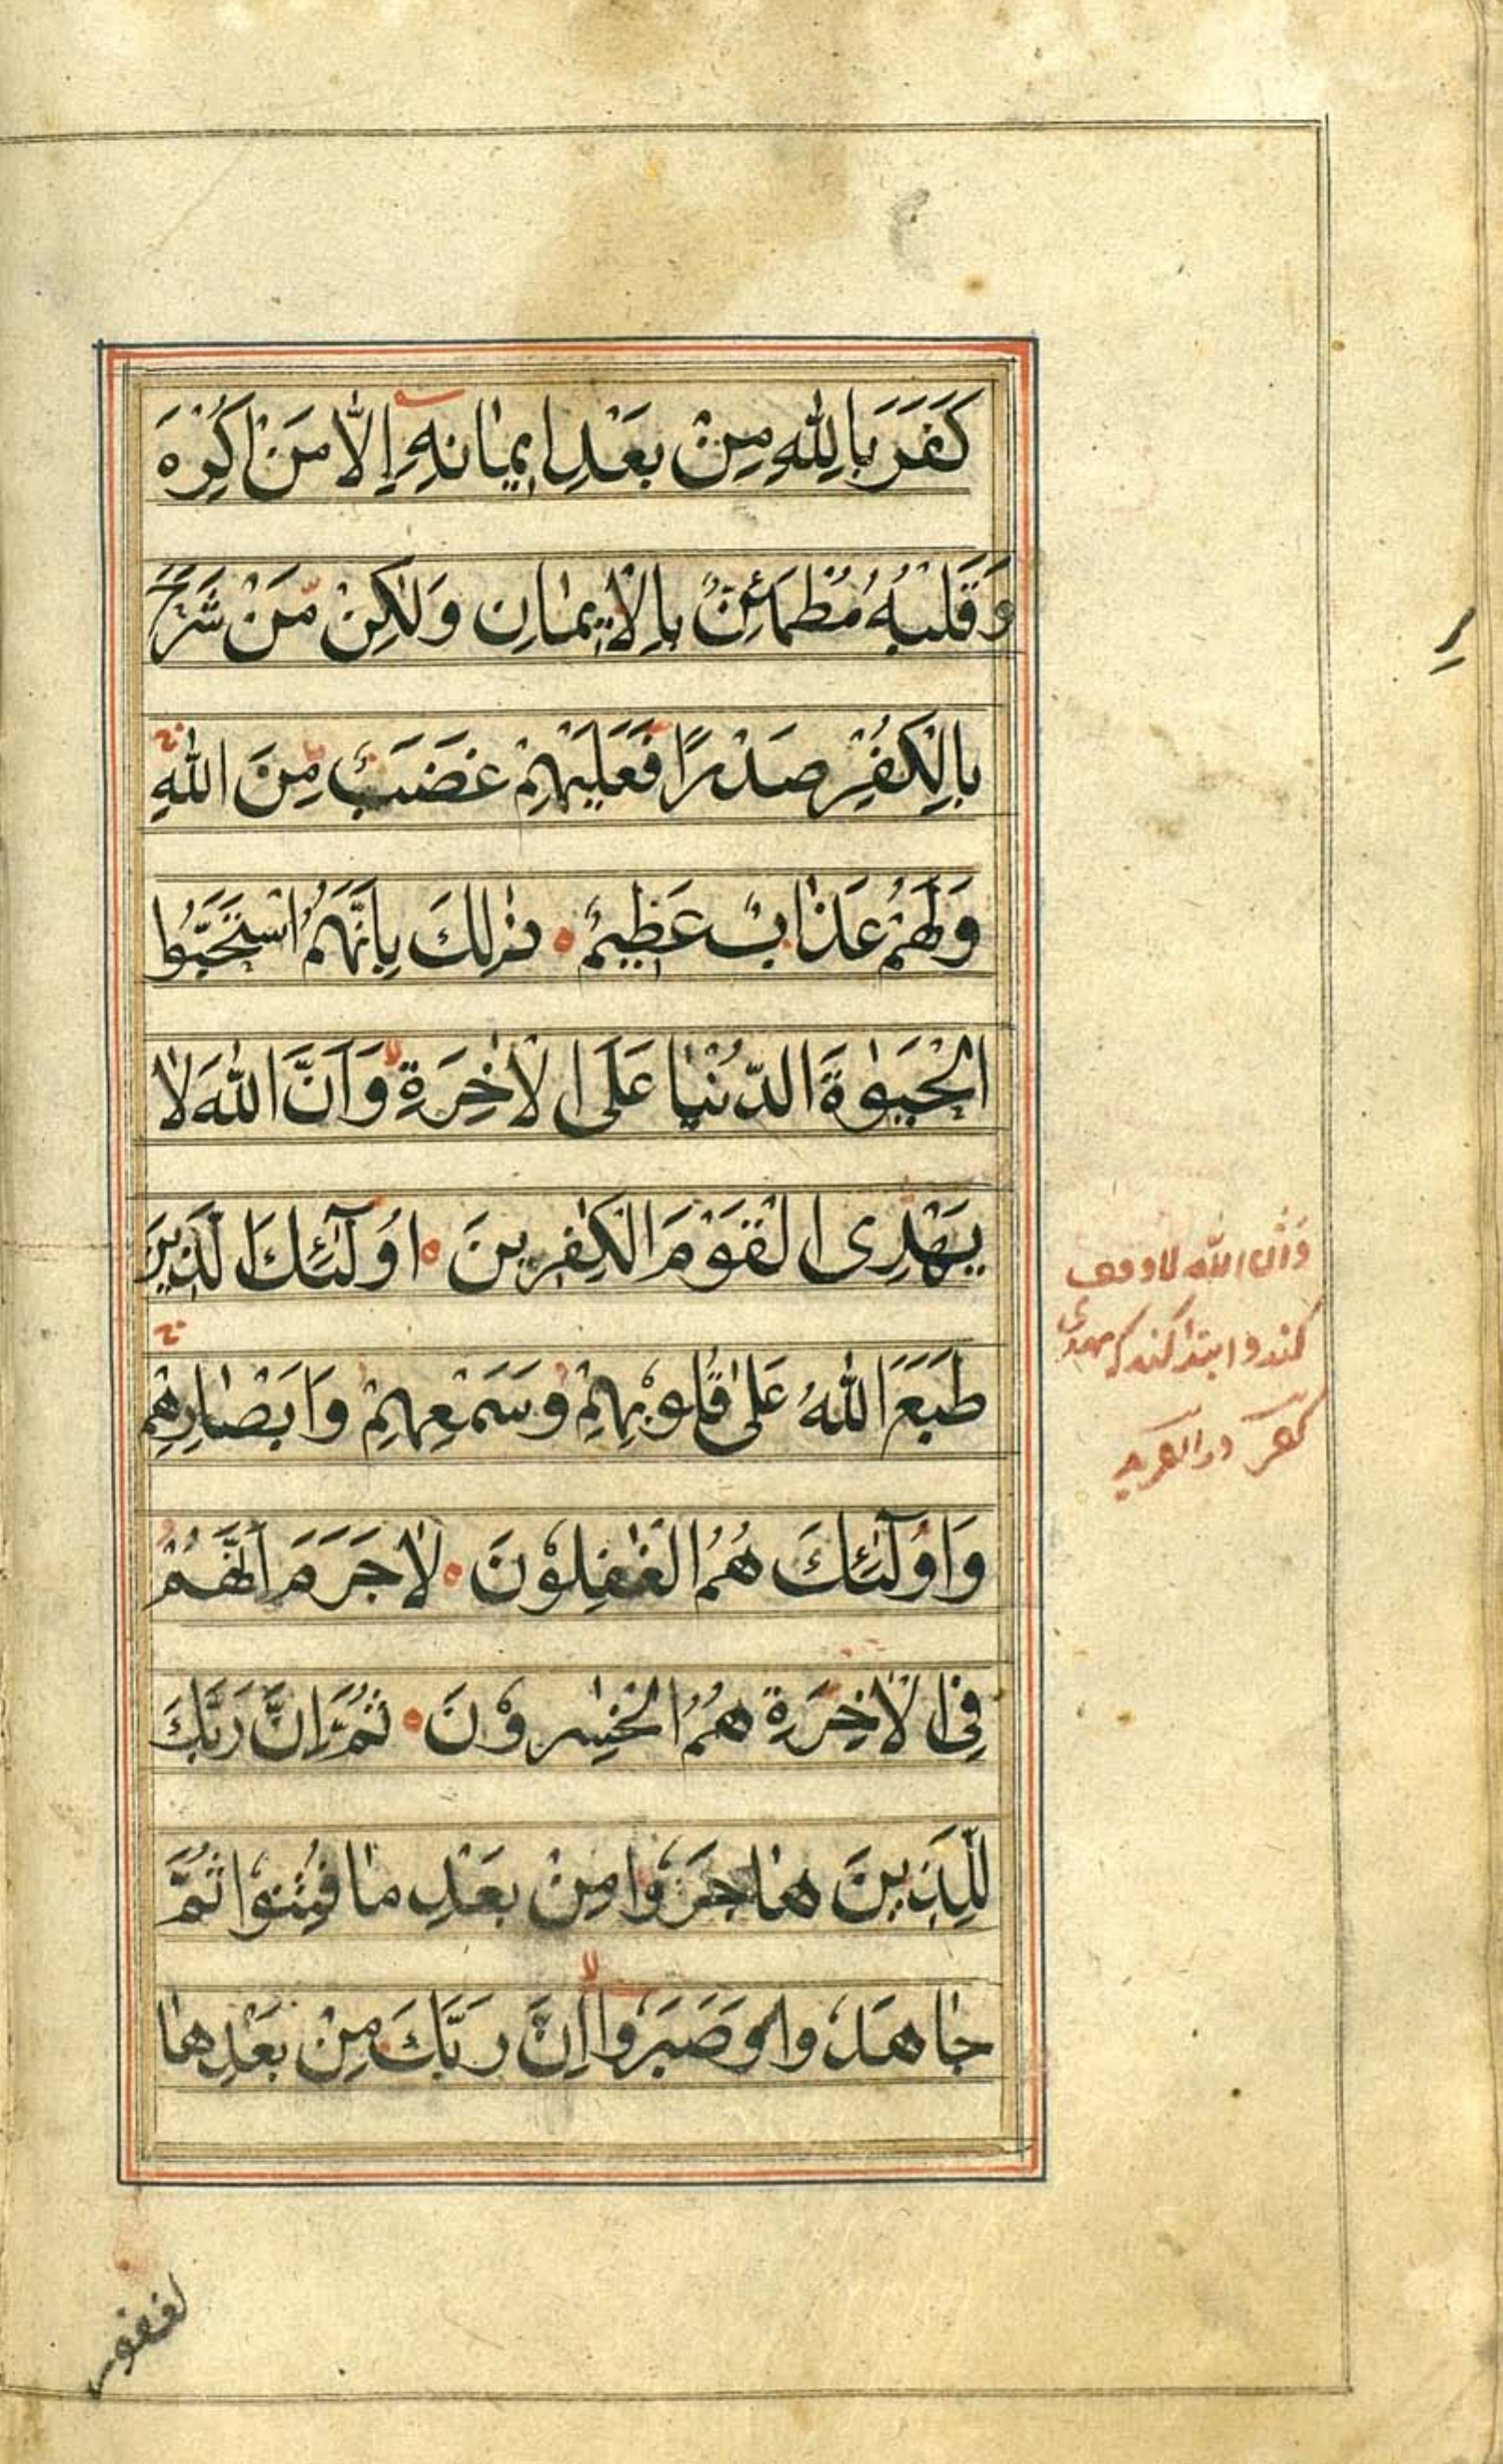 كَفَرَ بِاللّٰهِ مِنْ بَعْدِ اِيمٰانِهِ اِلّٰا مَنْ اُكْرِهَ
وَقَلْبُهُ مُطْمَئِنٌّ بِالْاِيمٰانِ وَلٰكِنْ مَنْ شَرَحَ
بِالْكُفْرِ صَدْرًا فَعَلَيْهِمْ غَضَبٌ مِنَ اللّٰهِ
وَلَهُمْ عَذٰابٌ عَظِيمٌ ذٰلِكَ بِاَنَّهُمُ اسْتَحَبُّوا
الْحَيٰوةَ الدُّنْيٰا عَلَى الْاٰخِرَةِ وَاَنَّ اللّٰهَ لٰا
يَهْدِى الْقَوْمَ الْكٰفِرِينَ اُولٰٓئِكَ الَّذِينَ
طَبَعَ اللّٰهُ عَلىٰ قُلُوبِهِمْ وَسَمْعِهِمْ وَاَبْصٰارِهِمْ
وَاُولٰٓئِكَ هُمُ الْغٰفِلُونَ لٰا جَرَمَ اَنَّهُمْ
فِى الْاٰخِرَةِ هُمُ الْخٰسِرُونَ ثُمَّ اِنَّ رَبَّكَ
لِلَّذِينَ هٰاجَرُوا مِنْ بَعْدِ مٰا فُتِنُوا ثُمَّ
جٰاهَدُوا وَصَبَرُوا اِنَّ رَبَّكَ مِنْ بَعْدِهٰا
وَاَنَّ اللّٰه لا وقف
كند و ابتدا كند
لغفور